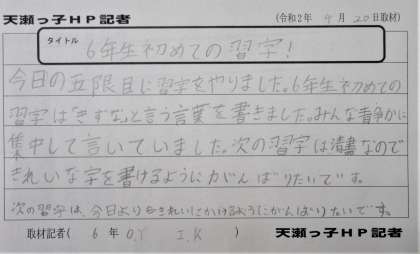 天瀬っ子HP記者 (令和2年 9月 20日取材)
タイトル
6年生初めての習字!
今日の五限目に習字をやりました。6年生初めての
習字は「きずな」と言う言葉を書きました。みんな静かに
集中して言いていました。次の習字は清書なので
きれいな字を書けるようにがんばりたいです。
次の習字は、今日よりもきれいにかけるようにがんばりたいです。
取材記者( 6 年 O.Y I.K ) 天瀬っ子HP記者